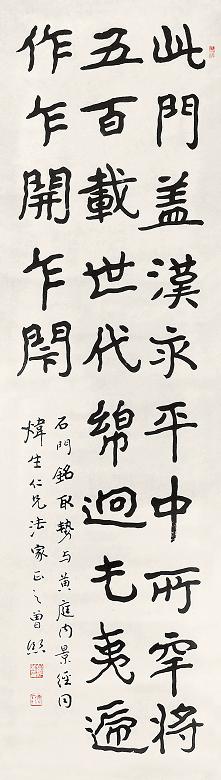 此門盖漢永平中所穿將
五百載世代綿迥屯夷遞
作乍開乍閇
石門銘取勢与黄庭内景經同
煒生仁兄法家正之曾熙